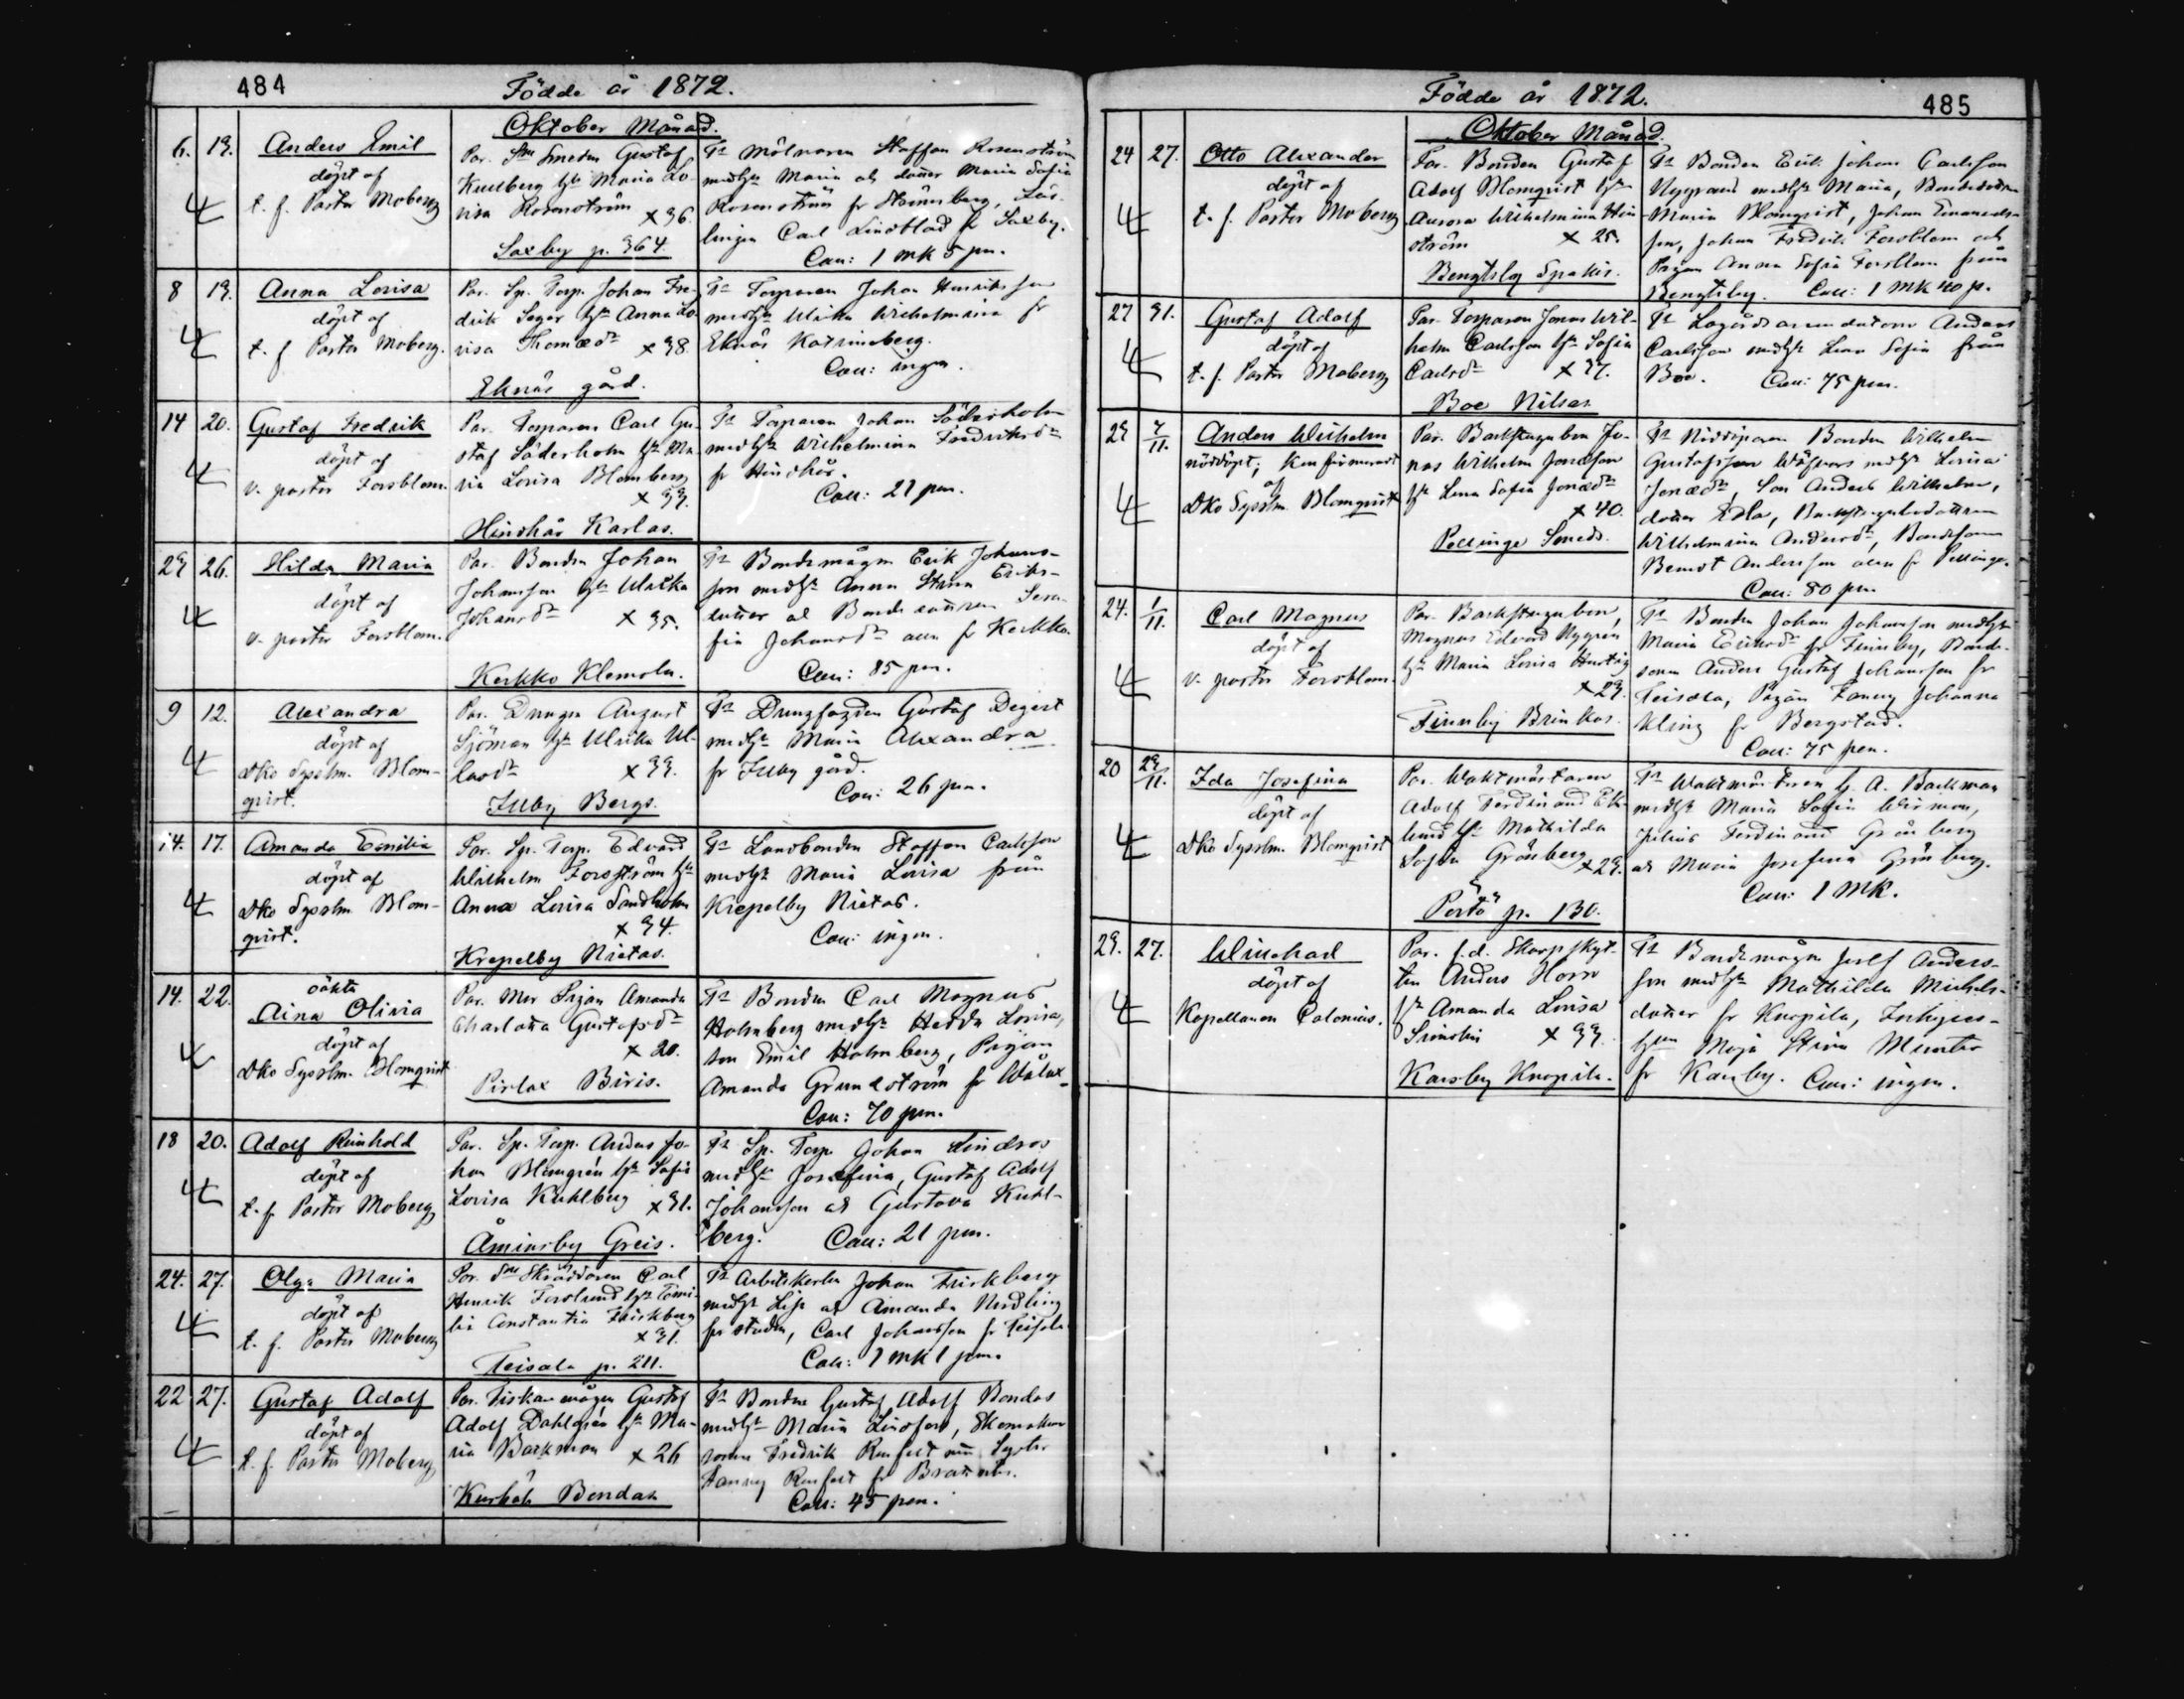 484
Födde år 1872.
Oktober Månad.
6. 13. Anders Emil
döpt af
t. f. Pastor Moberg
Par. Smeden Gustaf
Kullberg hu Maria Lo-
visa Rosenström
x 36.
Saxby p. 364.
Tt Mölnaren Staffan Rosenström
medhu Maria och dotter Maria Sofia
Rosenström fr Strömsberg, Lär-
lingen Carl Lindblad fr Saxby.
Coll: 1 mk 5 pen.
8 13. Anna Lovisa
döpt af
t. f Pastor Moberg.
Par. Sp. Torp. Johan Fre-
drik Seger hu Anna Lo-
visa Thomædr x 38.
Eknäs gård.
Tt Torparen Johan Henriksson
medhu Ulrika Wilhelmina fr
Eknäs Katrineberg.
Coll: ingen.
14 20. Gustaf Fredrik
döpt af
v. pastor Forsblom.
Par. Torparen Carl Gu-
staf Söderholm hu Ma-
ria Lovisa Blomberg
x 33.
Hindhår Karlas.
Tt Torparen Johan Söderholm
medhu Wilhelmina Fredriksdr
fr Hindhår.
Coll: 21 pen.
23 26. Hilda Maria
döpt af
v. pastor Forsblom.
Par. Bonden Johan
Johansson hu Ulrika
Johansdr x 35.
Kerkko Klemola.
Tt Bondemågen Erik Johans-
son medhu Anna Stina Eriks-
dotter och Bondedottren Sera-
fia Johansdr alla fr Kerkko.
Coll: 85 pen.
9 12. Alexandra
döpt af
Dko Sysslm. Blom-
qvist.
Par. Drengen August
Sjöman hu Ulrika Ul-
lasdr x 33.
Illby Bergs.
Tt Drengfogden Gustaf Degert
medhu Maria Alexandra
fr Illby gård.
Coll: 26 pen.
14. 17. Amanda Emilia
döpt af
Dko Sysslm. Blom-
qvist.
Par. Sp. Torp. Edvard
Wilhelm Forsström hu
Anna Lovisa Sandholm
x 34.
Krepelby Nietas.
Tt Landbonden Staffan Carlsson
medhu Maria Lovisa från
Krepelby Nietas.
Coll: ingen.
14. 22. oäkta
Aina Olivia
döpt af
Dko Sysslm. Blomqvist
Par. Mor Pigan Amanda
Charlotta Gustafsdr
x 20.
Pirlax Biris.
Tt Bonden Carl Magnus
Holmberg medhu Hedda Lovisa,
son Emil Holmberg, Pigan
Amanda Grundström fr Wålax.
Coll: 70 pen.
18 20. Adolf Reinhold
döpt af
t. f. Pastor Moberg
Par. Sp. Torp. Anders Jo-
han Blomgrén hu Sofia
Lovisa Kuhlberg x 31.
Åminsby Greis.
Tt Sp. Torp. Johan Lindros
medhu Josefina, Gustaf Adolf
Johansson och Gustava Kuhl-
berg. Coll: 21 pen.
24. 27. Olga Maria
döpt af
t. f. Pastor Moberg
Par. Skräddaren Carl
Henrik Forslund hu Emi-
lia Constantia Friskberg
x 31.
Teisala p. 211.
Tt Arbetskarlen Johan Friskberg
medhu Lisa och Amanda Nordling
fr staden, Carl Johansson fr Teisala
Coll: 1 mk 1 pen.
22 27. Gustaf Adolf
döpt af
t. f. Pastor Moberg
Par. Fiskaremågen Gustaf
Adolf Dahlgrén hu Ma-
ria Backman x 26
Kurböle Bondas
Tt Bonden Gustaf Adolf Bondas
medhu Maria Lindfors, Skomakare
sonen Fredrik Renfelt och Syster
Fanny Renfelt fr
Coll: 45 pen.
485
Födde år 1872.
Oktober Månad.
24 27. Otto Alexander
döpt af
t. f. Pastor Moberg
Par. Bonden Gustaf
Adolf Blomqvist hu
Aurora Wilhelmina Hin
ström x 25.
Bengtsby Spakis.
Tt Bonden Erik Johan Carlsson
Nygrand medhu Maria, Bondedottren
Maria Blomqvist, Johan Emanuels-
son, Johan Fredrik Forsblom och
Pigan Anna Sofia Forsblom från
Bengtsby. Coll: 1 mk 40 p.
27 31. Gustaf Adolf
döpt af
t. f. Pastor Moberg
Par. Torparen Jonas Wil-
helm Carlsson hu Sofia
Carlsdr x 37.
Boe Nilsas
Tt Lagårdsarrendatorn Anders
Carlsson medhu Lena Sofia från
Boe. Coll: 75 pen.
23 7/11. Anders Wilhelm
nöddöpt; konfirmeradt
af
Dko Sysslm. Blomqvist
Par. Backstugubon Jo-
nas Wilhelm Jonasson
hu Lena Sofia Jonædr
x 40.
Pellinge Smeds.
Tt Nöddöparen Bonden Wilhelm
Gustafsson Wåfvars medhu Lovisa
Jonædr, Son Anders Wilhelm,
dotter Edla, Backstugubodottren
Wilhelmina Andersdr, Bondesonen
Berndt Andersson alla fr Pellinge.
Coll: 80 pen
24. 1/11. Carl Magnus
döpt af
v. pastor Forsblom.
Par. Backstugubon,
Magnus Edvard Nygrén
hu Maria Lovisa Hurtig
x 23.
Finnby Brinkas.
Tt Bonden Johan Johansson medhu
Maria Eriksdr fr Finnby, Bonde-
sonen Anders Gustaf Johansson fr
Teisala, Pigan Fanny Johanna
Kling fr Bergstad.
Coll: 75 pen.
20 23/11. Ida Josefina
döpt af
Dko Sysslm. Blomqvist
Par. Waktmästaren
Adolf Ferdinand Ek-
lund hu Mathilda
Sofia Grönberg x 23.
Pörtö p. 130.
Tt Waktmästaren G. A. Backman
medhu Maria Sofia Wirman,
Julius Ferdinand Grönberg
och Maria Josefina Grönberg.
Coll: 1 mk.
23. 27. Winehad
döpt af
Kapellanen Calonius.
Par. f.d. Skarpskyt-
ten Anders Horn
hu Amanda Lovisa
x 33.
Karsby Knapila.
Tt Bondemågen Josef Anders-
son medhu Mathilda Michels-
dotter fr Knapila, Inhyses-
Maja Stina Munter
fr Karsby. Coll: ingen.